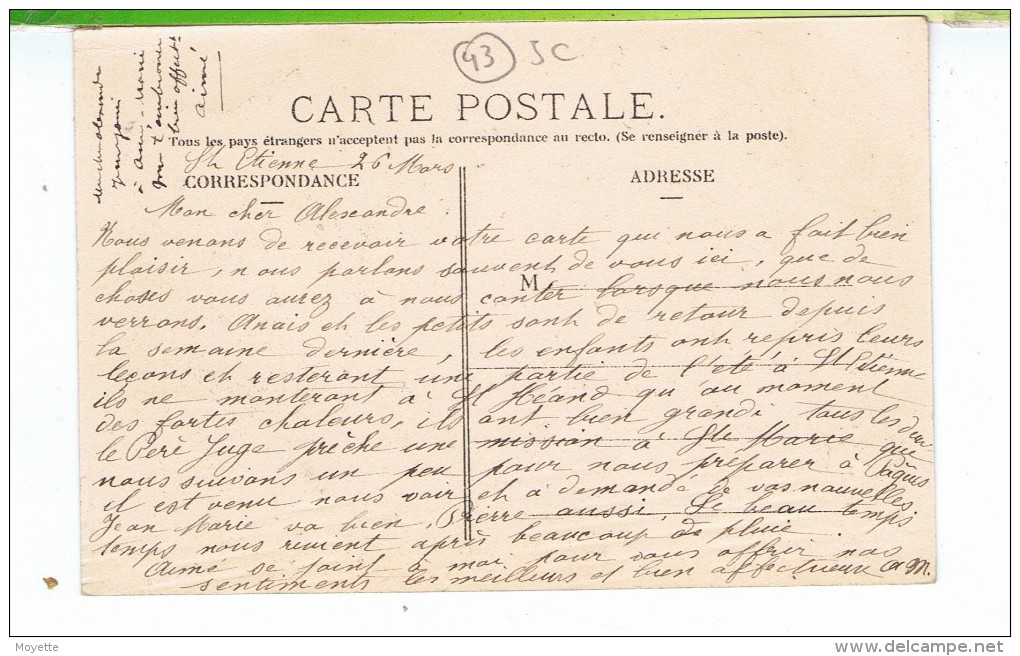 43 JC
CARTE POSTALE.
Tous les pays étrangers n'acceptent pas la correspondance au recto. (Se renseigner à la poste).
St Etienne 26 Mars
CORRESPONDANCE
ADRESSE
M
Mon cher Alexandre
Nous venons de recevoir votre carte qui nous a fait bien
plaisir, nous parlons souvent de vous ici, que de
choses vous aurez à nous conter lorsque nous nous
verrons. Anais et les petits sont de retour depuis
la semaine dernière, les enfants ont repris leurs
leçons et resteront une partie de l'été à St Etienne
ils ne monteront à St Héand qu'au moment
des fortes chaleurs, ils ont bien grandi tous les deux
le Père Juge prêche une mission à Ste Marie que
nous suivons un peu pour nous préparer à Pâques
il est venu nous voir et a demandé de vos nouvelles.
Jean Marie va bien, Pierre aussi. Le beau temps
temps nous revient après beaucoup de pluie
Aimé se joint à moi pour vous offrir nos
sentiments les meilleurs et bien affectueux AM.
à Anne-Marie
bien affect.
Aimé
Moyette
www.delcampe.net